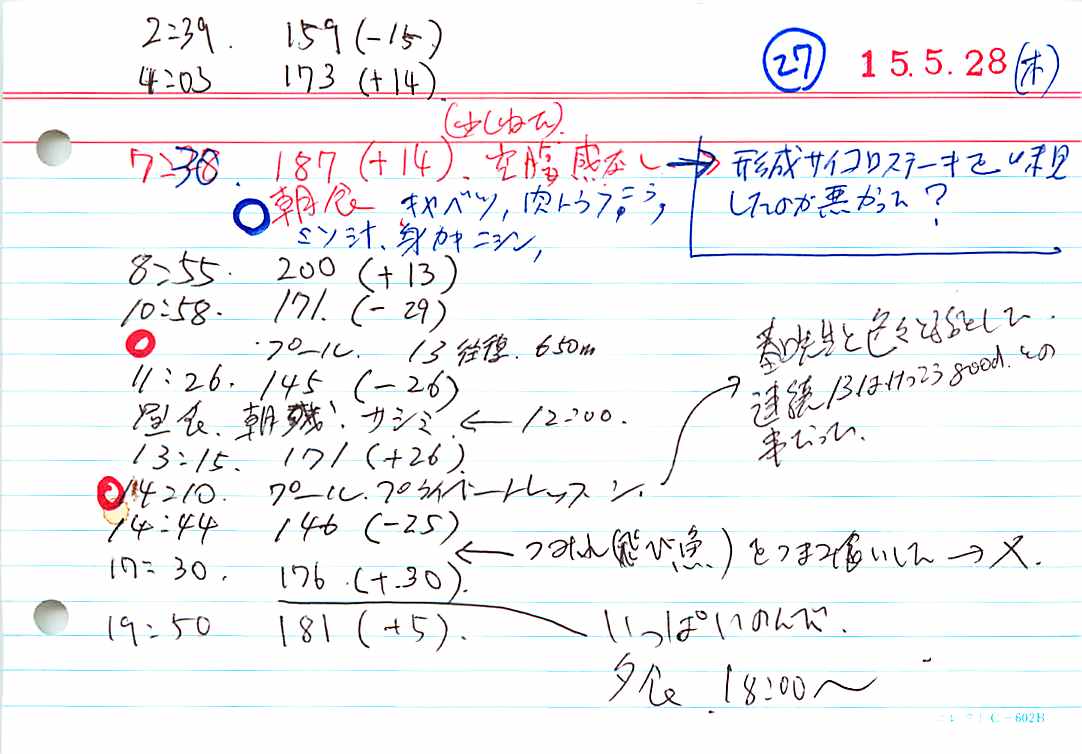 2:39. 159 (-15)
4:03 173 (+14)
㉗ 15.5.28 (木)
(少しねて).
7:38. 187 (+14). 空腹感なし → 形成サイコロステーキで
したのが悪かった?
朝食 キャベツ, 肉トウフ, こう,
ミソ汁, 身カキニシン,
8:55. 200 (+13)
10:58. 171. (-29)
プール. 13 往復. 650m
11:26. 145 (-26)
昼食. 朝残り. サシミ ← 12:00.
13:15. 171 (+26)
14:10. プール. プライベートレッスン.
先生と色々と話をした.
連続13はけっこう good. との
事だった.
14:44 146 (-25)
← つみれ(飛び魚)をつまみ食いした → X.
17:30. 176. (+30).
19:50 181 (+5).
いっぱいのんだ.
夕食. 18:00〜
C-602B